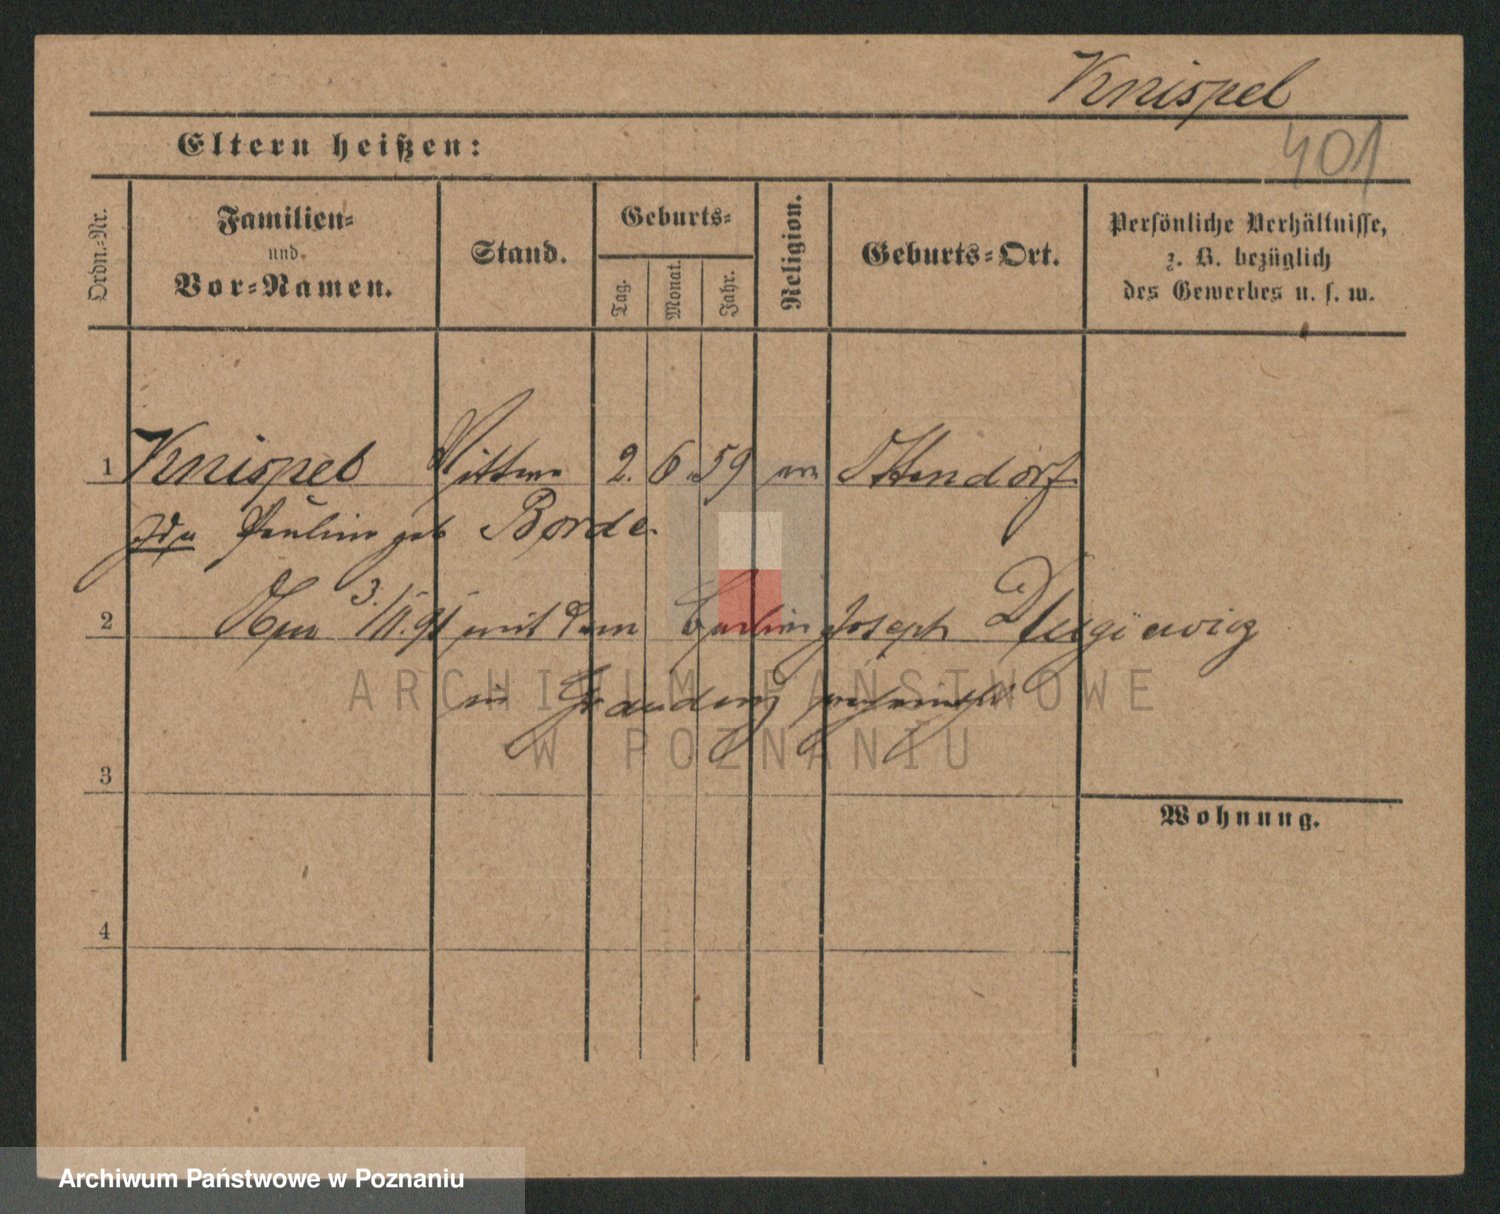 Knispel
401
Eltern heißen:
Ordn.-Nr.
Familien-
und
Vor-Namen.
Stand.
Geburts-
Tag.
Monat.
Jahr.
Religion.
Geburts-Ort.
Persönliche Verhältnisse,
z. B. bezüglich
des Gewerbes u. s. w.
1 Knispel Wittwe 2. 6. 59 Ottendorf
Pauline geb Borde.
2 3./11. 91 mit dem Joseph Dlugiewicz
in Graudenz verheirathet
ARCHIWUM PAŃSTWOWE
W POZNANIU
3
Wohnung.
4
Archiwum Państwowe w Poznaniu